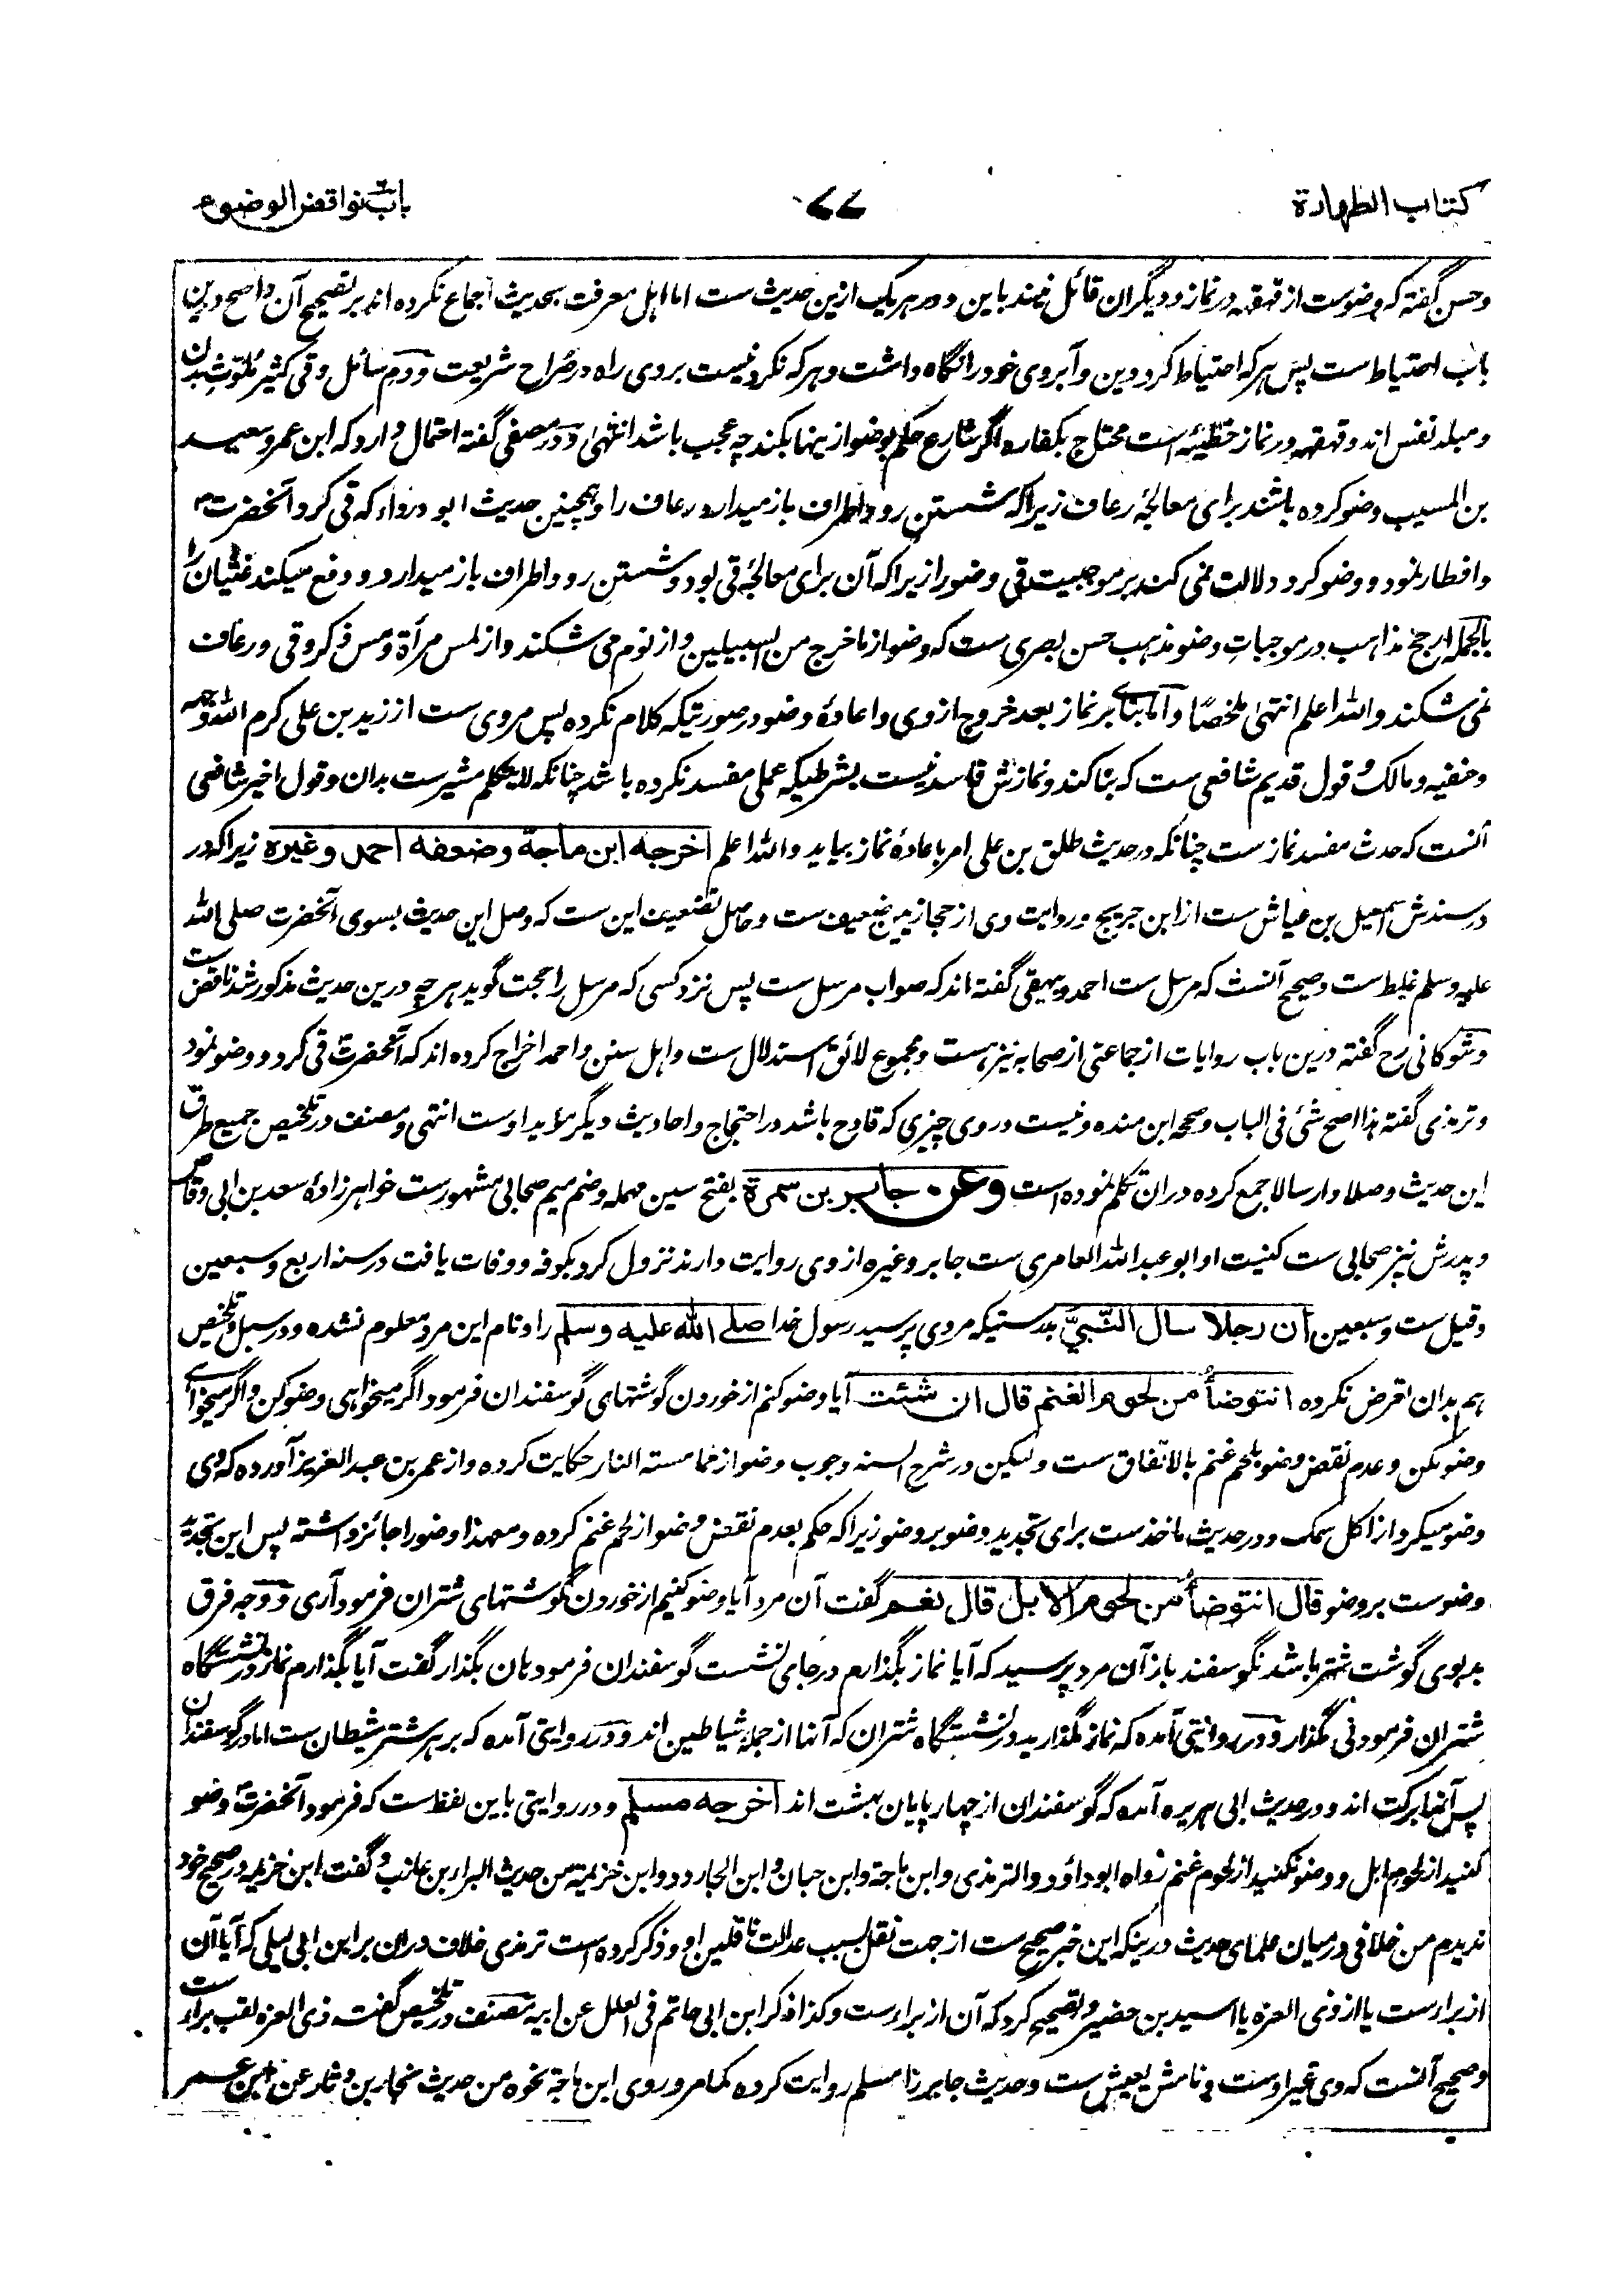 كتاب الطهارة
۷۷
باب نواقض الوضوء
وحسن گفته که وضوست از قهقهه در نماز و دیگران قائل نیند باین و در هر یک ازین حدیث ست اما اهل معرفت بحدیث اجماع نکرده اند بر تصحیح آن و اصح درین
باب احتیاط است پس هر که احتیاط کرد دین و آبروی خود را نگاه داشت و هر که نکرد نیست بر وی راه در صُراح شریعت و دم سائل و قی کثیر مُلوّث بدن
و مبلد نفس اند و قهقهه در نماز خطیئه است محتاج بکفاره اگر شارع حکم بوضو ازینها بکند چه عجب باشد انتهی و در مصفی گفته احتمال دارد که ابن عمر و سعید
بن المسیب وضو کرده باشند برای معالجۂ رعاف زیرا که شستن رو و اطراف باز میدارد رعاف را و همچنین حدیث ابو درداء که قی کرد آنحضرت ص
و افطار نمود و وضو کرد دلالت نمی کند بر موجبیت قی وضو را زیرا که آن برای معالجۂ قی بود و شستن رو و اطراف باز میدارد و دفع میکند غثیان را
بالجمله ارجح مذاهب در موجبات وضو مذهب حسن بصری ست که وضو از ما خرج من السبیلین و از نوم می شکند و از لمس مرأة و مس ذکر و قی و رعاف
نمی شکند والله اعلم انتهی ملخصًا و اما بنای بر نماز بعد خروج از وی و اعادۂ وضو در صورتیکه کلام نکرده پس مروی ست از زید بن علی کرم الله وجهه
و حنفیه و مالک و قول قدیم شافعی ست که بنا کند و نمازش فاسد نیست بشرطیکه عملی مفسد نکرده باشد چنانکه لا یتکلم مشیرست بدان و قول اخیر شافعی
آنست که حدث مفسد نماز ست چنانکه در حدیث طلق بن علی امر باعادۂ نماز بیاید والله اعلم اخرجه ابن ماجة وضعفه احمد وغیره زیرا که در
در سندش اسمعیل بن عیاش ست از ابن جریج و روایت وی از حجازیین ضعیف ست و حاصل تضعیف این ست که وصل این حدیث بسوی آنحضرت صلی الله
علیه وسلم غلط است و صحیح آنست که مرسل ست احمد و بیهقی گفته اند که صواب مرسل ست پس نزد کسی که مرسل را حجت گوید هر چه درین حدیث مذکور شد ناقض ست
و شوکانی رح گفته درین باب روایات از جماعتی از صحابه نیز هست و مجموع لائق استدلال ست و اهل سنن و احمد اخراج کرده اند که آنحضرت قی کرد و وضو نمود
و ترمذی گفته هذا اصح شئ فی الباب و صححه ابن منده و نیست در وی چیزی که قادح باشد در احتجاج و احادیث دیگر مؤید اوست انتهی و مصنف در تلخیص جمیع طرق
این حدیث وصلا و ارسالا جمع کرده دران تکلم نموده است وعن جابر بن سمرة بفتح سین مهمله و ضم میم صحابی مشهورست خواهرزادۂ سعد بن ابی وقاص
و پدرش نیز صحابی ست کنیت او ابو عبد الله العامری ست جابر و غیره از وی روایت دارند نزول کرد بکوفه و وفات یافت در سنه اربع و سبعین
و قیل ست و سبعین ان رجلا سال النّبیَّ بدرستیکه مردی پرسید رسول خدا صلے الله علیه وسلم را و نام این مرد معلوم نشده و در سبل و تلخیص
هم بدان تعرض نکرده انتوضأ من لحوم الغنم قال ان شئت آیا وضو کنم از خوردن گوشتهای گوسفندان فرمود اگر میخواهی وضو کن و اگر میخواهی
وضو مکن و عدم نقض وضو بلحم غنم بالاتفاق ست و لیکن در شرح السنه وجوب وضو از مما مسته النار حکایت کرده و از عمر بن عبد العزیز آورده که وی
وضو میکرد از اکل سمک و در حدیث ماخذست برای تجدید وضو بر وضو زیرا که حکم بعدم نقض وضو از لحم غنم کرده و معهذا وضو را جائز داشته پس این تجدید
وضوست بر وضو قال انتوضأ من لحوم الابل قال نعم گفت آن مرد آیا وضو کنیم از خوردن گوشتهای شتران فرمود آری و وجه فرق
بد بوی گوشت شتر باشد نگوسفند باز آن مرد پرسید که آیا نماز بگذارم در جای نشست گوسفندان فرمود بان بگذار گفت آیا بگذارم نماز در نشستگاه
شتران فرمود نی مگذار و در روایتی آمده که نماز مگذارید در نشستگاه شتران که آنها از جمله شیاطین اند و در روایتی آمده که بر هر شتر شیطان ست اما در گوسفندان
پس آنها برکت اند و در حدیث ابی هریره آمده که گوسفندان از چهار پایان بهشت اند اخرجه مسلم و در روایتی باین لفظ ست که فرمود آنحضرت وضو
کنید از لحوم ابل و وضو نکنید از لحوم غنم رواه ابو داؤد و الترمذی و ابن ماجة و ابن حبان و ابن الجارود و ابن خزیمة من حدیث البراء بن عازب و گفت ابن خزیمه در صحیح خود
ندیدم من خلافی در میان علمای حدیث درینکه این خبر صحیح ست از جهت نقل بسبب عدالت ناقلین او و ذکر کرده است ترمذی خلاف دران بر ابن ابی لیلی که آیا آن
از براءست یا از ذی الغره یا اسید بن حضیر و تصحیح کرد که آن از براءست و کذا ذکر ابن ابی حاتم فی العلل عن ابیه مصنف در تلخیص گفت ذی الغره لقب براء ست
و صحیح آنست که وی غیر اوست و نامش یعیش ست و حدیث جابر را مسلم روایت کرده کما مر و روی ابن ماجة نحوه من حدیث محارب بن دثار عن ابن عمر